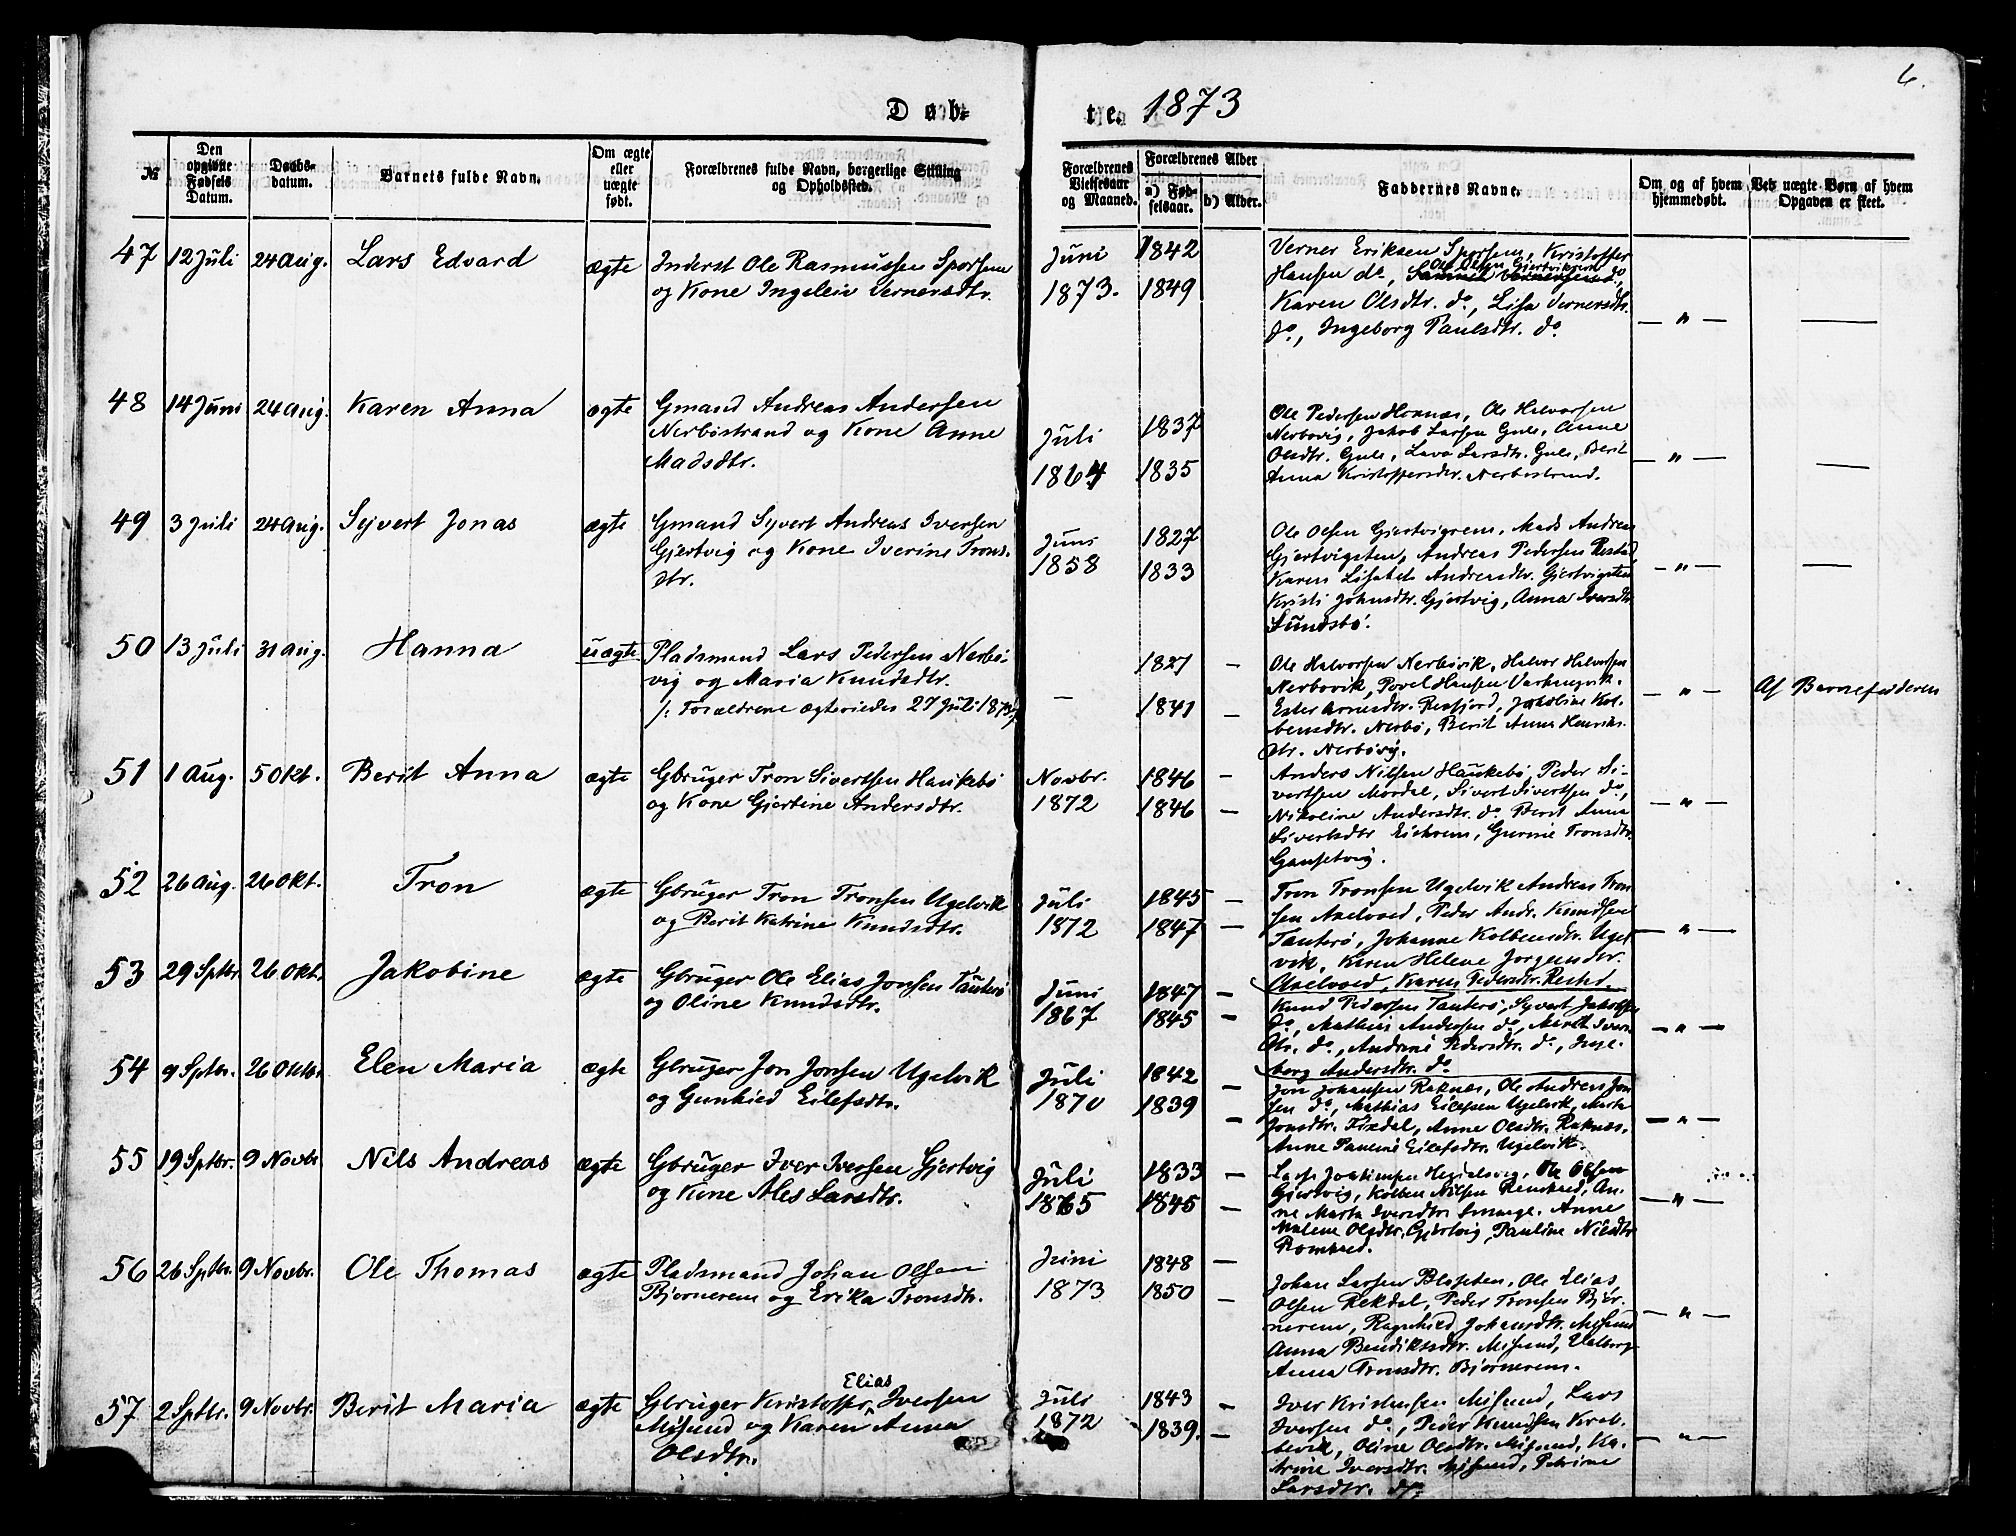 6.
Døb-
te. 1873
№
Den opgivne Fødsels Datum.
Daabs-datum.
Barnets fulde Navn.
Om ægte eller uægte født.
Forældrenes fulde Navn, borgerlige Stilling og Opholdssted.
Forældrenes Vielsesaar og Maaned.
Forældrenes Alder
a) Fød-selsaar.
b) Alder.
Faddernes Navne.
Om og af hvem hjemmedøbt.
Ved uægte Børn af hvem Opgaven er skeet.
47 12 Juli 24 Aug. Lars Edvard ægte Inderst Ole Rasmussen Sporsem
og Kone Ingeleiv Vernersdtr.
Juni 1873. 1842 1849
Verner Eriksen Sporsem, Kristoffer
Hansen do, Ole Olsen Gjertvikrem
Karen Olsdtr. do, Lisa Vernersdtr.
do, Ingeborg Paulsdtr. do
— " —
48 14 Juni 24 Aug. Karen Anna ægte Gmand Andreas Andersen
Nerbøstrand og Kone Anne
Madsdtr.
Juli 1864 1837 1835
Ole Pedersen Hovnæs, Ole Halvorsen
Nerbøvig, Jakob Larsen Gule, Anne
Olsdtr. Gule, Lava Larsdtr. Gule, Berit
Anna Kristoffersdtr. Nerbøstrand.
— " —
49 3 Juli 24 Aug. Syvert Jonas ægte Gmand Syvert Andreas Iversen
Gjertvig og Kone Iverine Trons-
dtr.
Juni 1858 1827 1833
Ole Olsen Gjertvigrem, Mads Andreas
Gjertvigsten, Andreas Pedersen Restad,
Karen Lisabet Andreasdtr. Gjertvigsten
Kristi Johnsdtr. Gjertvig, Anna Iversdtr.
Sundsbø.
— " —
50 13 Juli 31 Aug. Hanna uægte Pladsmand Lars Pedersen Nerbø-
vig og Maria Knudsdtr.
/: Forældrene ægteviedes 27 Juli 1873 :/
— 1827 1841
Ole Halvorsen Nerbøvik, Halvor Halvorsen
Nerbøvik, Povel Hansen
Ester Arnesdtr. , Jakobine Kol-
bensdtr. Nerbø, Berit Anna Henriks-
dtr. Nerbøvig.
— " — Af Barnefaderen
51 1 Aug. 5 Okt. Berit Anna ægte Gbruger Tron Sivertsen Haukebø
og Kone Gjertine Andersdtr.
Novbr. 1872 1846 1846
Anders Nilsen Haukebø, Peder Si-
vertsen Mordal, Sivert Sivertsen do,
Nikoline Andersdtr. do Berit Anna
Sivertsdtr Eikrem, Gurine Tronsdtr.
Gansetvig.
— " —
52 26 Aug. 26 Okt. Tron ægte Gbruger Tron Tronsen Ugelvik
og Berit Katrine Knudsdtr.
Juli 1872 1845 1847
Tron Tronsen Ugelvik Andreas Tron-
sen Axelvoed, Peder Andr. Knudsen
Tauterø, Johanne Kolbensdtr. Ugel-
vik, Karen Helene Jørgensdtr.
Axelvoed, Karen Pedersdtr. Restad.
— " —
53 29 Sptbr. 26 Okt. Jakobine ægte Gbruger Ole Elias Jonsen Tauterø
og Oline Knudsdtr.
Juni 1867 1847 1845
Knud Pedersen Tauterø, Syvert Jakobsen
do, Mathias Andersen do, Merit Ivers-
dtr. do, Andrine Pedersdtr. do, Inge-
borg Andersdtr. do
— " —
54 9 Sptbr. 26 Oktbr. Elen Maria ægte Gbruger Jon Jonsen Ugelvik
og Gunhild Eilefsdtr.
Juli 1870 1842 1839
Jon Johansen Raknæs, Ole Andreas Jon-
sen do, Mathias Eilefsen Ugelvik, Marta
Jonsdtr. , Anne Olsdtr. Raknæs,
Anne Pauline Eilefsdtr. Ugelvik.
— " —
55 19 Sptbr. 9 Novbr Nils Andreas ægte Gbruger Iver Iversen Gjertvig
og Kone Ales Larsdtr.
Juli 1865 1833 1845
Lasse Joakimsen , Ole Olsen
Gjertvig, Kolben Nilsen Remhaed, An-
ne Marta Iversdtr. Smaage, Anne
Malene Olsdtr. Gjertvig, Pauline Nilsdtr.
Romhaed.
— " —
56 26 Sptbr. 9 Novbr. Ole Thomas ægte Pladsmand Johan Olsen
Bjørnerem og Erika Tronsdtr.
Juni 1873 1848 1850
Johan Larsen , Ole Elias
Olsen Rekdal, Peder Tronsen Bjør-
nerem, Ragnhild Johansdtr. Misund
Anna Bendiksdtr. Misund, Valborg
Anna Tronsdtr. Bjørnerem.
— " —
57 2 Sptbr. 9 Novbr. Berit Maria ægte Gbruger Kristoffer Elias Iversen
Misund og Karen Anna
Olsdtr.
Juli 1872 1843 1839.
Iver Kristensen Misund, Lars
Iversen do, Peder Knudsen Krab-
bevik, Oline Olsdtr. Misund, Ka-
trine Iversdtr. Misund, Petrine
Larsdtr. do.
— " —